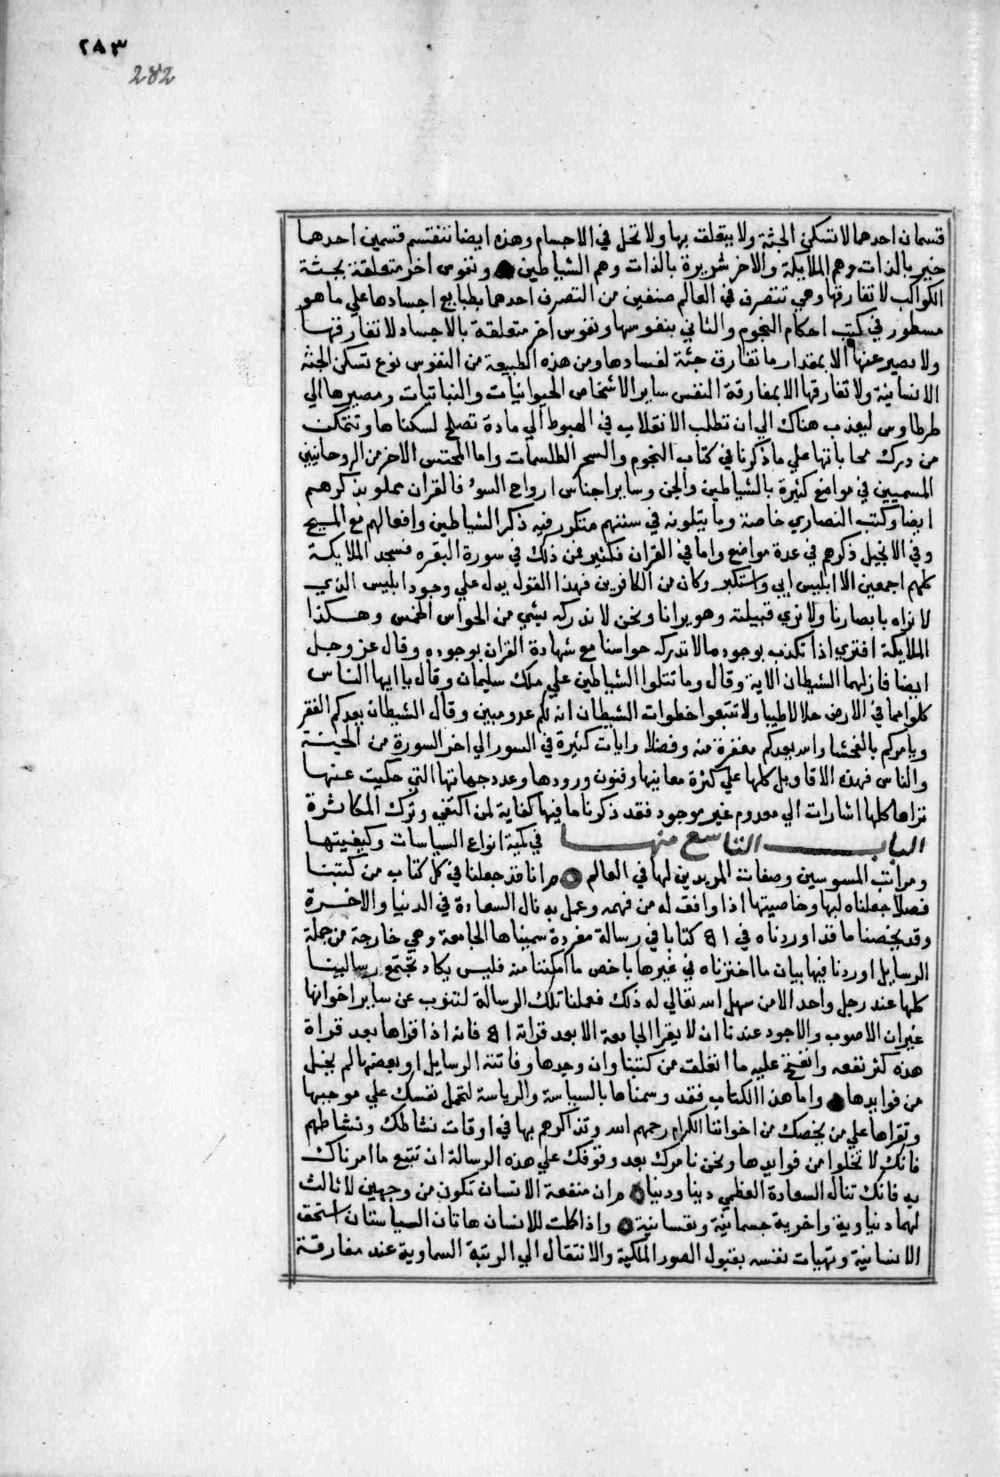 ٢٨٣
282
قسمان احدهما لا تسكن الجثة ولا يتعلق بها ولا تحل في الاجسام وهذه ايضا تنقسم قسمين احدهما
خير بالذات وهم الملايكة والاخر شريرة بالذات وهم الشياطين ونفوس اخر متعلقة بجثة
الكواكب لا تفارقها وهي تتصرف في العالم صنفين من التصرف احدهما بطبايع اجسادها علي ما هو
مسطور في كتب احكام النجوم والثاني بنفوسها ونفوس اخر متعلقة بالاجساد لا تفارقها
ولا تصير عنها الا بمقدار ما تفارق جثة لفسادها ومن هذه الطبيعة من النفوس نوع تسكن الجثة
الانسانية ولا تفارقها الا بمفارقة النفس ساير الاشخاص الحيوانيات والنباتيات ومصيرها الي
طرطاوس ليعذب هناك الي ان تطلب الانقلاب في الهبوط الي مادة تصلح لسكناها وتتمكن
من درك محاباتها علي ما ذكرنا في كتاب النجوم والسحر الطلسمات واما المحتس الاخر من الروحانيين
المسميين في مواضع كثيرة بالشياطين والجن وساير اجناس ارواح السوء فالقران مملو بذكرهم
ايضا وكتب النصاري خاصة وما يتلونه في سننهم متكرر فيه ذكر الشياطين وافعالهم مع المسيح
وفي الانجيل ذكرهم في عدة مواضع واما في القران فكثير فمن ذلك في سورة البقره فسجد الملايكة
كلهم اجمعين الا ابليس ابي واستكبر وكان من الكافرين فهذا القول يدل علي وجود ابليس الذي
لا نراه بابصارنا ولا نري قبيلته وهو يرانا ونحن لا ندركه بشي من الحواس الخمس وهكذا
الملايكة افتري اذا نكذب بوجود ما لا تدركه حواسنا مع شهادة القران بوجوده وقال عز وجل
ايضا فازلهما الشيطان الاية وقال وما تتلوا الشياطين علي ملك سليمان وقال يا ايها الناس
كلوا مما في الارض حلالا طيبا ولا تتبعوا خطوات الشيطان انه لكم عدو مبين وقال الشيطان يعدكم الفقر
ويامركم بالفحشا والله يعدكم مغفرة منه وفضلا وايات كثيرة في السور الي اخر السورة من الجنة
والناس فهذه الاقاويل كلها علي كثرة معانيها وفنون ورودها وعدد جهاتها التي حكيت عنها
تراها كلها اشارات الي معدوم غير موجود فقد ذكرنا ما فيها كفاية لمن اكتفي وترك المكاثرة
الباب التاسع منها في كمية انواع السياسات وكيفيتها
ومراتب المسوسين وصفات المريدين لها في العالم انا قد جعلنا في كل كتاب من كتبنا
فصلا جعلناه لبها وخاصيتها اذا وافق له من فهمه وعمل به نال السعادة في الدنيا والاخرة
وقد يخصنا ما قد اوردناه في ٥١ كتابا في رسالة مفردة سميناها الجامعة وهي خارجة من جملة
الرسايل اوردنا فيها بيان ما اختزناه في غيرها باخص ما امكننا منه فليس يكاد تجتمع رسالينا
كلها عند رجل واحد الا من سهل الله تعالي له ذلك فعملنا تلك الرسالة لتنوب عن ساير اخوانها
غير ان الاصوب والاجود عندنا ان لا يقرا الجامعة الا بعد قراة ٥١ فانه اذا قراها بعد قراة
هذه كثر نفعه وانفتح عليه ما انغلق من كتبنا وان وجدها وفاتته الرسايل او بعضها لم يخل
من فوايدها واما هذا الكتاب فقد وسمناها بالسياسة والرياسة لتحمل نفسك علي موجبها
وتقراها علي من يخصك من اخواننا الكرام رحمهم الله وتذاكرهم بها في اوقات نشاطك ونشاطهم
فانك لا تخلوا من فوايدها ونحن نامرك بعد وقوفك علي هذه الرسالة ان تتبع ما امرناك
به فانك تنال السعادة العظمي دينا ودنيا ان منفعة الانسان تكون من وجهين لا ثالث
لهما دنياوية واخروية جسمانية ونفسانية واذا كملت للانسان هاتان السياستان استحق
الانسانية وتهيات نفسه بقبول الصور الملكية والانتقال الي الرتبة السماوية عند مفارقة